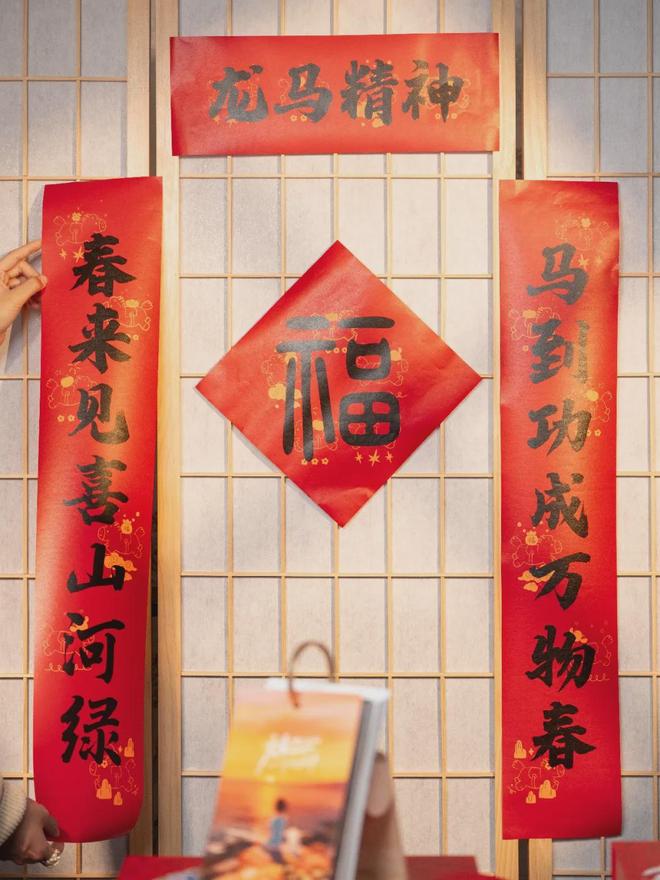 龙马精神
马到功成万物春
春来见喜山河绿
福